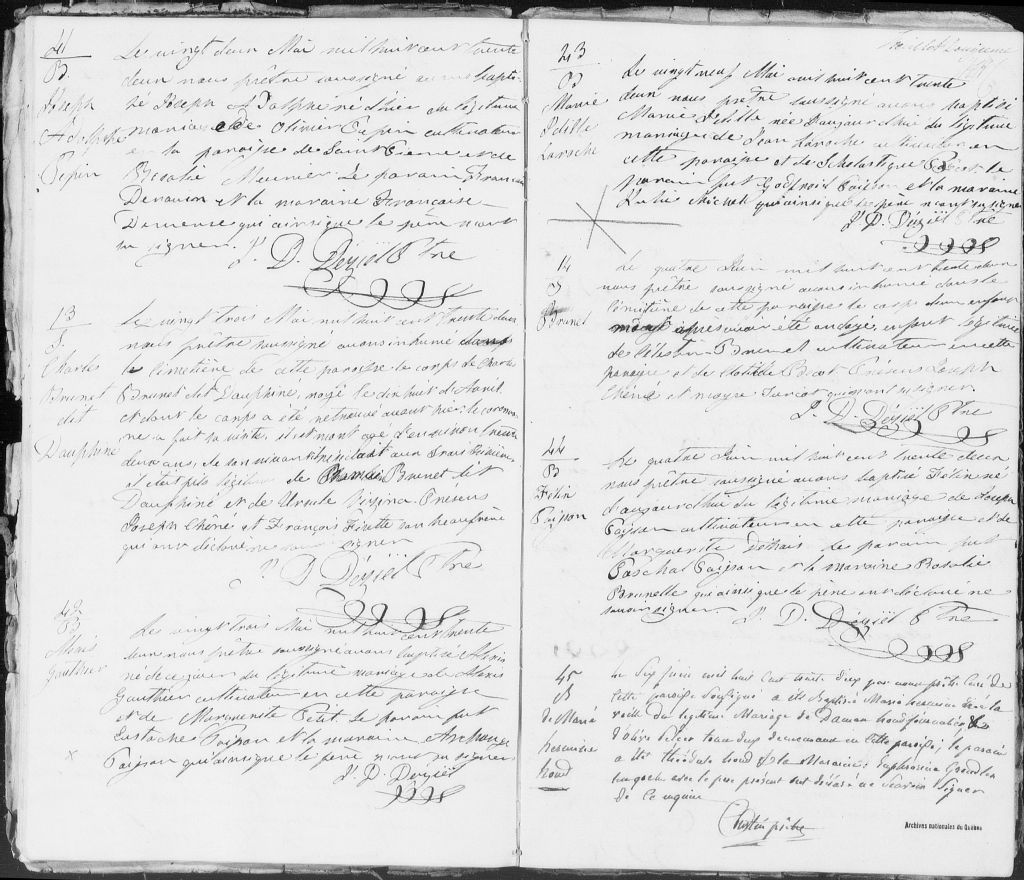 41
B.
Joseph
Adolphe
Pepin
Le vingt deux Mai mil huit cent trente
deux nous prêtre soussigné avons bapti-
sé Joseph Adolphe né hier du légitime
mariage de Olivier Pepin cultivateur
en la paroisse de Saint Pierre et de
Rosalie Meunier Le parain François
et la maraine Française
qui ainsi que le père n'ont
su signer. J. D. Déziel Ptre
13
S.
Charles
Brunet
dit
Dauphiné
Le vingt trois Mai mil huit cent trente deux
nous prêtre soussigné avons inhumé dans
le cimetière de cette paroisse le corps de Charles
Brunet dit Dauphiné, noyé le dix huit d'Avril
et dont le corps a été retrouvé avant hier le corono-
re a fait sa visite, il est mort agé d'environ trente
deux ans, de son vivant aux Trois Rivières
et était fils légitime de Brunet dit
Dauphiné et de Ursule Présens
Joseph Chêné et François son beau frère
qui ont déclaré ne savoir signer
J. D. Déziel Ptre
42
B
Alexis
Gauthier
Le vingt trois Mai mil huit cent trente
deux nous prêtre soussigné avons baptisé Alexis
né de ce jour du légitime mariage de Alexis
Gauthier cultivateur en cette paroisse
et de Marguerite Petit. Le parain fut
Eustache Poisson et la maraine Archange
Poisson qui ainsi que le père n'ont su signer
J. D. Déziel
x
43
B
Marie
Odille
Laroche
Le vingt neuf Mai mil huit cent trente
deux nous prêtre soussigné avons baptisé
Marie Odille née d'aujourd'hui du légitime
mariage de Jean Laroche cultivateur en
cette paroisse et de Scholastique Le
parain fut Godfroid Poisson et la maraine
Julie Michel qui ainsi que le père n'ont su signer
J. D. Déziel Ptre
14
S
Brunet
Le quatre Juin mil huit cent trente deux
nous prêtre soussigné avons inhumé dans le
cimetière de cette paroisse le corps d'un enfant
mort après avoir été ondoyé, enfant légitime
de Célestin Brunet cultivateur en cette
paroisse et de Clotilde Présens Joseph
Chêné et Moyse Turcot qui n'ont su signer
J. D. Déziel Ptre
44
B
Félix
Poisson
Le quatre Juin mil huit cent trente deux
nous prêtre soussigné avons baptisé Félix né
d'aujourd'hui du légitime mariage de Joseph
Poisson cultivateur en cette paroisse et de
Marguerite Le parain fut
Paschal Poisson et la maraine Rosalie
Brunelle qui ainsi que le père ont déclaré ne
savoir signer. J. D. Déziel Ptre
45
B
de Marie
hermine
houd
Le Six Juin mil huit cent trente deux par nous prêtre Curé de
Cette paroisse Soussigné a été Baptisé Marie hermine née la
veille du légitime Mariage de Damon houd
d'olive tous deux demeurant en Cette paroisse; le parain
a été théodule houd & la Maraine Euphrosine
lesquels avec le père présent ont déclaré ne Scavoir Signer
de Ce requis
prêtre
Archives nationales du Québec